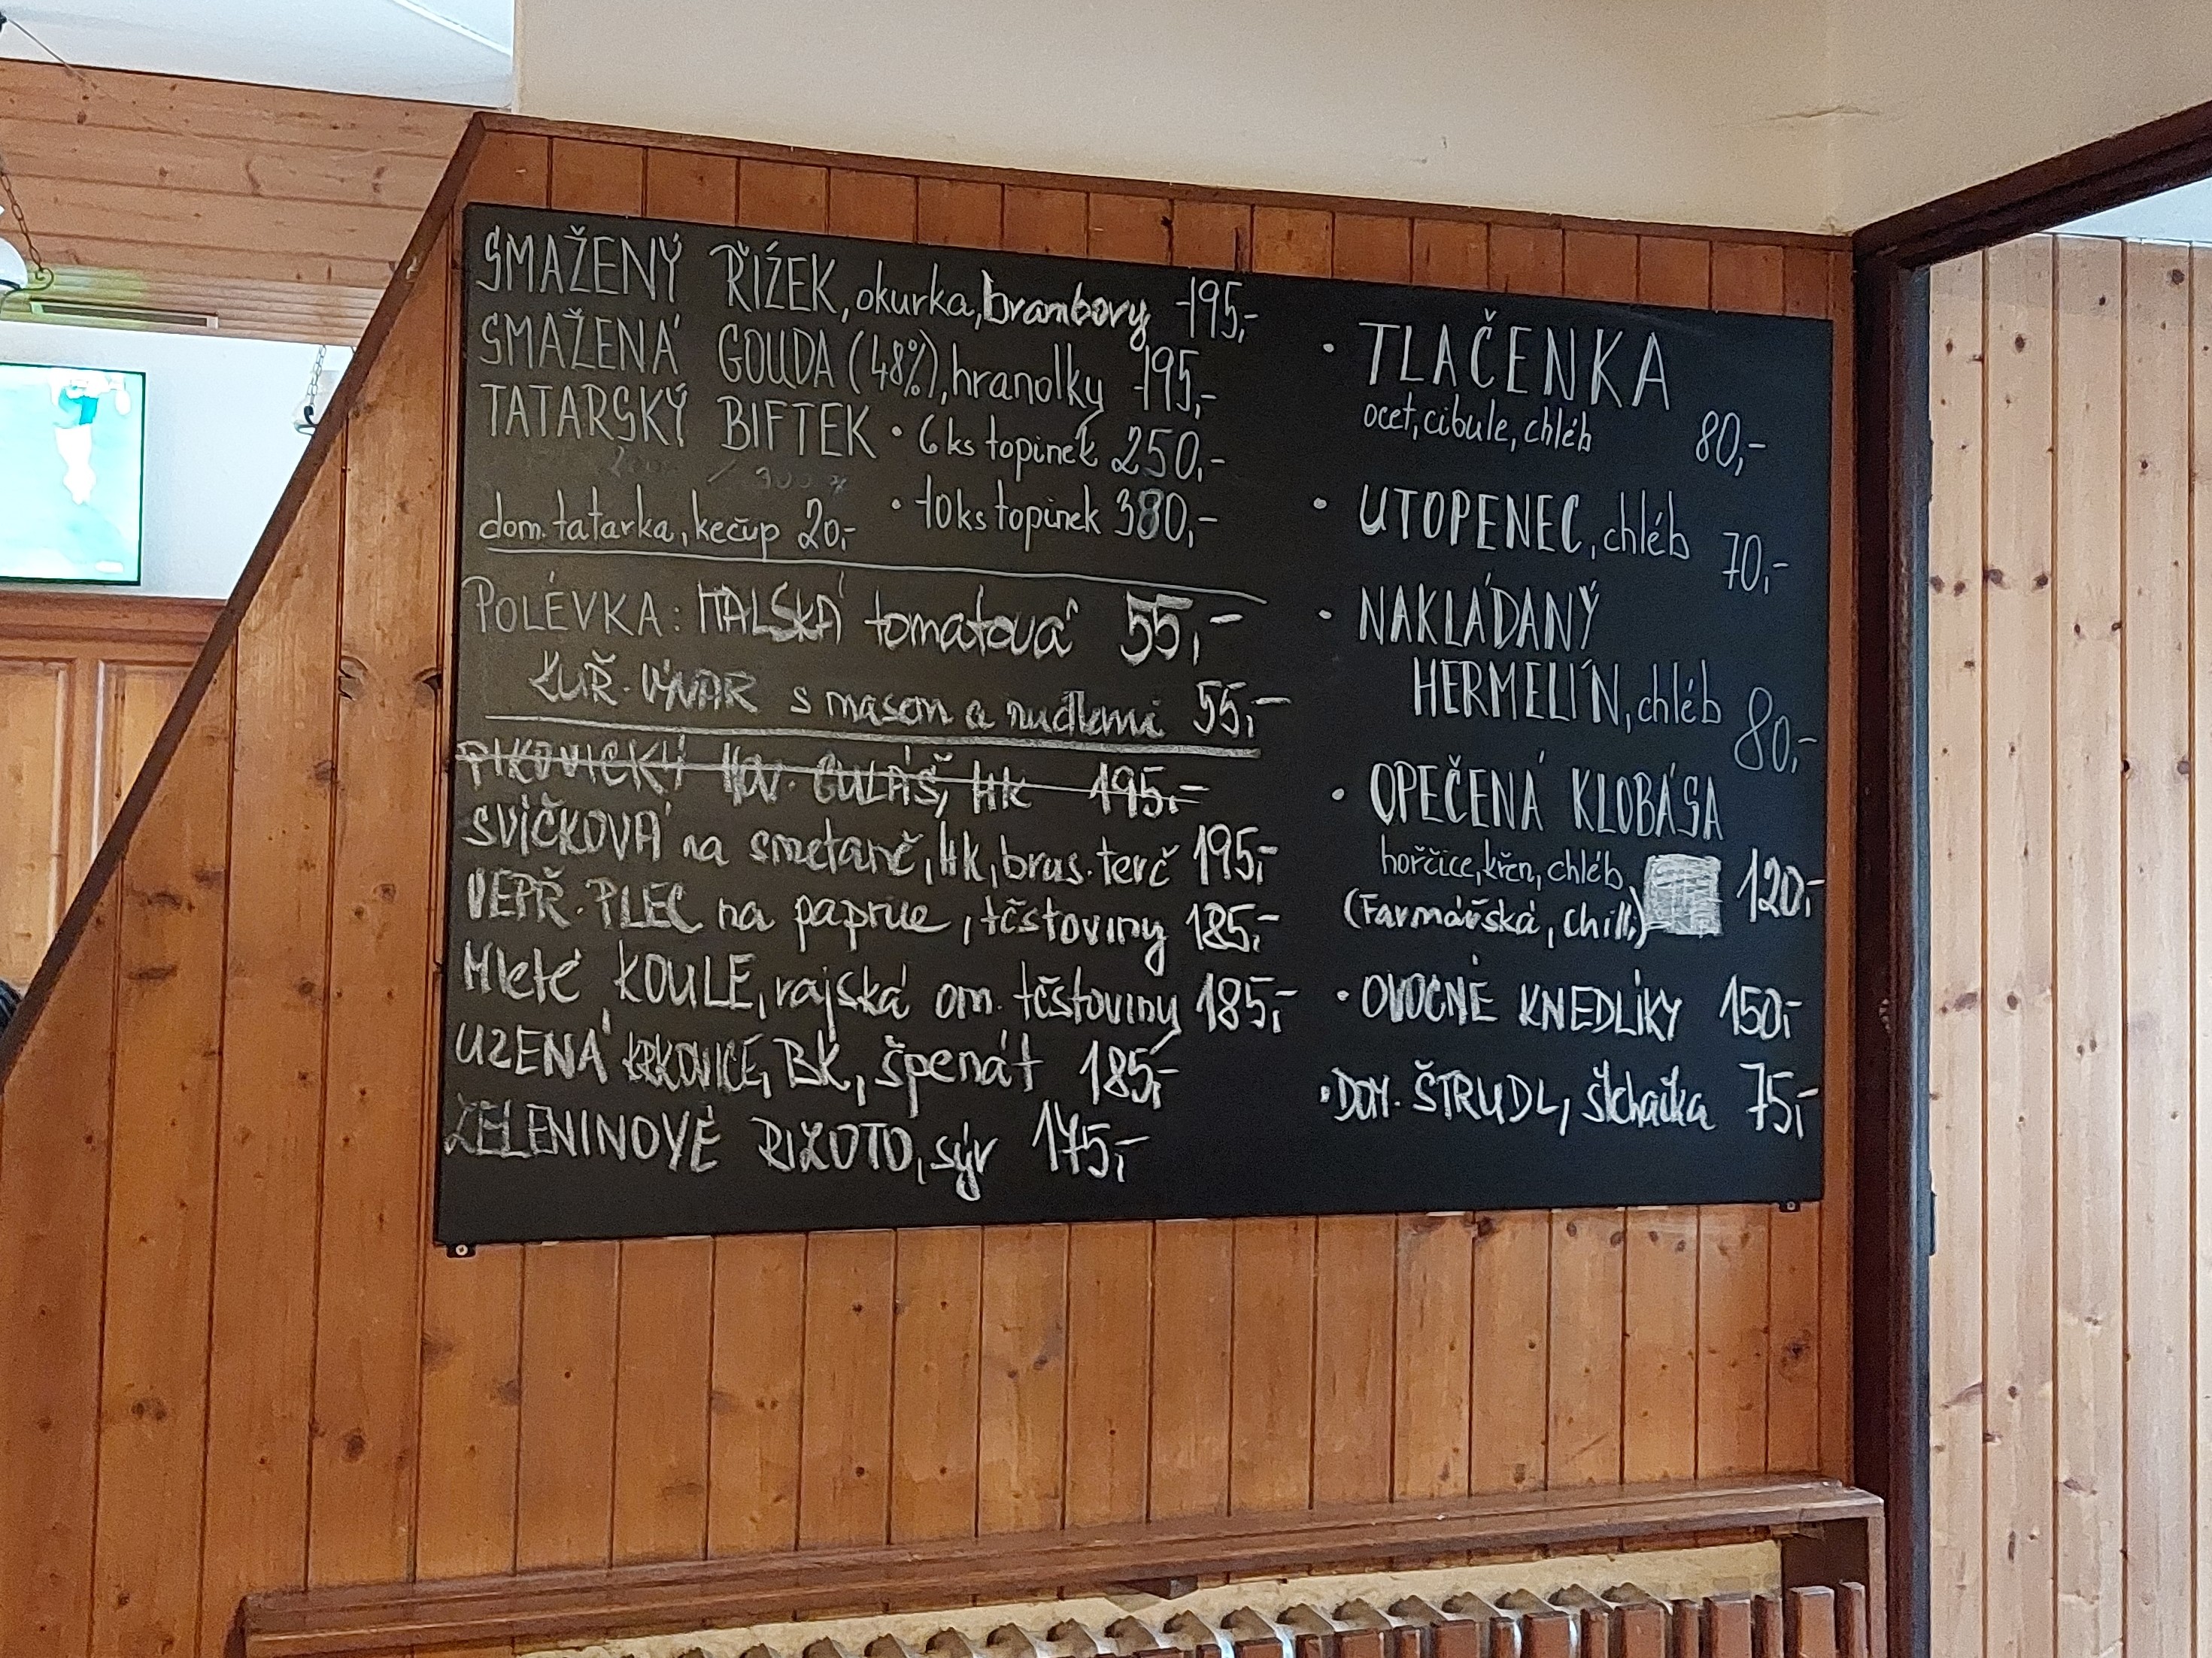 SMAŽENÝ ŘÍZEK, okurka, brambory 195,-
SMAŽENÁ GOUDA (48%), hranolky 195,-
TATARSKÝ BIFTEK • 6ks topinek 250,-
dom. tatarka, kečup 20,- • 10ks topinek 380,-
POLÉVKA: ITALSKÁ tomatová 55,-
KUŘ. VÝVAR s masem a nudlemi 55,-
PIKOVICKÝ HOV. GULÁŠ, HK 195,-
SVÍČKOVÁ na smetaně, HK, brus. terč 195,-
VEPŘ. PLEC na paprice, těstoviny 185,-
Mleté KOULE, rajská om. těstoviny 185,-
UZENÁ KRKOVICE, BK, špenát 185,-
ZELENINOVÉ RIZOTO, sýr 175,-
• TLAČENKA
ocet, cibule, chléb 80,-
• UTOPENEC, chléb 70,-
• NAKLÁDANÝ
HERMELÍN, chléb 80,-
• OPEČENÁ KLOBÁSA
hořčice, křen, chléb, 120,-
(Farmářská, chilli)
• OVOCNÉ KNEDLÍKY 150,-
• DOM. ŠTRUDL, šlehačka 75,-